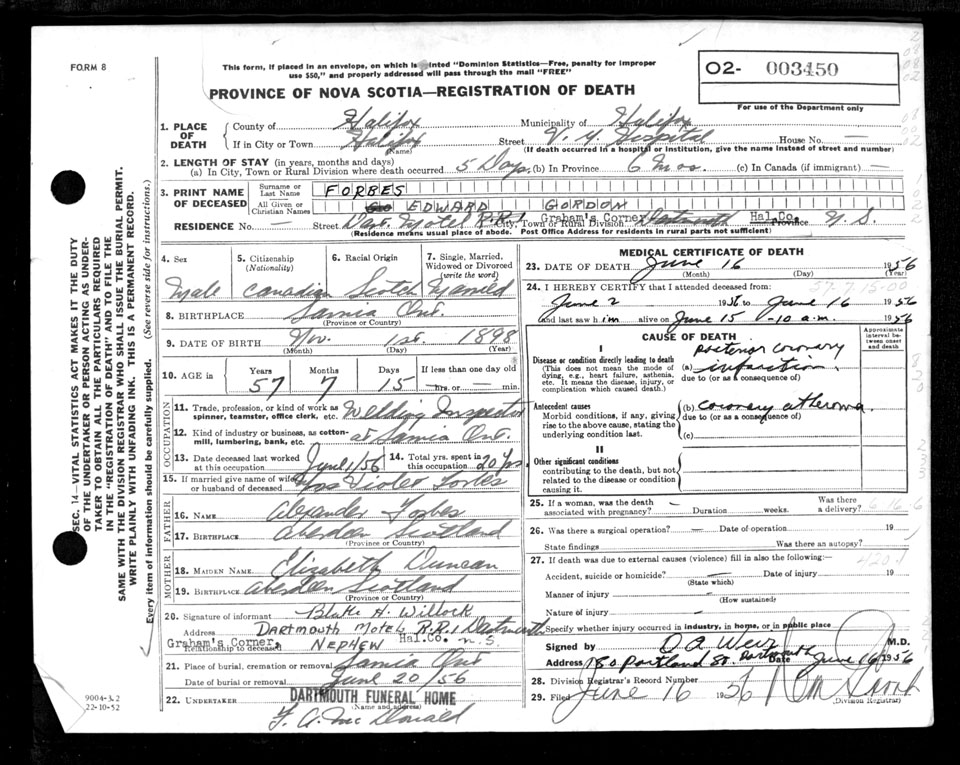 FORM 8
This form, if placed in an envelope, on which is printed "Dominion Statistics—Free, penalty for improper
use $50," and properly addressed will pass through the mail "FREE"
O2- 003450
For use of the Department only
PROVINCE OF NOVA SCOTIA—REGISTRATION OF DEATH
1. PLACE OF DEATH
County of Halifax Municipality of Halifax
If in City or Town Halifax Street V. G. Hospital House No. —
(Name) (If death occurred in a hospital or institution, give the name instead of street and number)
2. LENGTH OF STAY (in years, months and days)
(a) In City, Town or Rural Division where death occurred 5 Days (b) In Province 6 Mos. (c) In Canada (if immigrant) —
3. PRINT NAME OF DECEASED
Surname or Last Name FORBES
All Given or Christian Names EDWARD GORDON
RESIDENCE No. — Street Dart. Motel R.R.1 Graham's Corner City, Town or Rural Division Dartmouth Hal.Co. Province N. S.
(Residence means usual place of abode. Post Office Address for residents in rural parts not sufficient)
4. Sex Male
5. Citizenship (Nationality) Canadian
6. Racial Origin Scotch
7. Single, Married, Widowed or Divorced (write the word) Married
8. BIRTHPLACE Sarnia Ont.
(Province or Country)
9. DATE OF BIRTH Nov. 1st. 1898
(Month) (Day) (Year)
10. AGE in Years 57 Months 7 Days 15 If less than one day old — hrs. or — min.
OCCUPATION
11. Trade, profession, or kind of work as spinner, teamster, office clerk, etc. Welding Inspector
12. Kind of industry or business, as cotton-mill, lumbering, bank, etc. at Sarnia Ont.
13. Date deceased last worked at this occupation June 1/56
14. Total yrs. spent in this occupation 20 Yrs.
15. If married give name of wife or husband of deceased Mrs Violet Forbes
FATHER
16. NAME Alexander Forbes
17. BIRTHPLACE Aberdeen Scotland
(Province or Country)
MOTHER
18. MAIDEN NAME Elizabeth Duncan
19. BIRTHPLACE Aberdeen Scotland
(Province or Country)
20. Signature of informant Blake H. Willock
Address DARTMOUTH MOTEL R.R. 1 Dartmouth
Graham's Corner, Hal.Co. N.S.
Relationship to deceased NEPHEW
21. Place of burial, cremation or removal Sarnia Ont
Date of burial or removal June 20/56
22. UNDERTAKER DARTMOUTH FUNERAL HOME
(Name and address)
F. A. Mc Donald
MEDICAL CERTIFICATE OF DEATH
23. DATE OF DEATH June 16 1956
(Month) (Day) (Year)
24. I HEREBY CERTIFY that I attended deceased from:
57-7-15-00
June 2 1956 to June 16 1956
and last saw him alive on June 15 -10 a.m. 1956
CAUSE OF DEATH
Approximate interval between onset and death
I
Disease or condition directly leading to death
(This does not mean the mode of dying, e.g., heart failure, asthenia, etc. It means the disease, injury, or complication which caused death.)
(a) posterior coronary infarction.
due to (or as a consequence of)
Antecedent causes
Morbid conditions, if any, giving rise to the above cause, stating the underlying condition last.
(b) coronary atheroma.
due to (or as a consequence of)
(c)
II
Other significant conditions
contributing to the death, but not related to the disease or condition causing it.
25. If a woman, was the death associated with pregnancy? — Duration weeks. Was there a delivery?
26. Was there a surgical operation? — Date of operation 19
State findings Was there an autopsy?
27. If death was due to external causes (violence) fill in also the following:—
420.1
Accident, suicide or homicide? — Date of injury 19
(State which)
Manner of injury —
(How sustained)
Nature of injury —
Specify whether injury occurred in industry, in home, or in public place
Signed by O A Weir M.D.
Address 180 Portland St. Dartmouth Date June 16 1956
28. Division Registrar's Record Number
29. Filed June 16 1956
(Division Registrar)
SEC. 14—VITAL STATISTICS ACT MAKES IT THE DUTY
OF THE UNDERTAKER OR PERSON ACTING AS UNDER-
TAKER TO OBTAIN ALL THE PARTICULARS REQUIRED
IN THE "REGISTRATION OF DEATH" AND TO FILE THE
SAME WITH THE DIVISION REGISTRAR WHO SHALL ISSUE THE BURIAL PERMIT.
WRITE PLAINLY WITH UNFADING INK. THIS IS A PERMANENT RECORD.
Every item of information should be carefully supplied. (See reverse side for instructions.)
9004-3.2
22-10-52